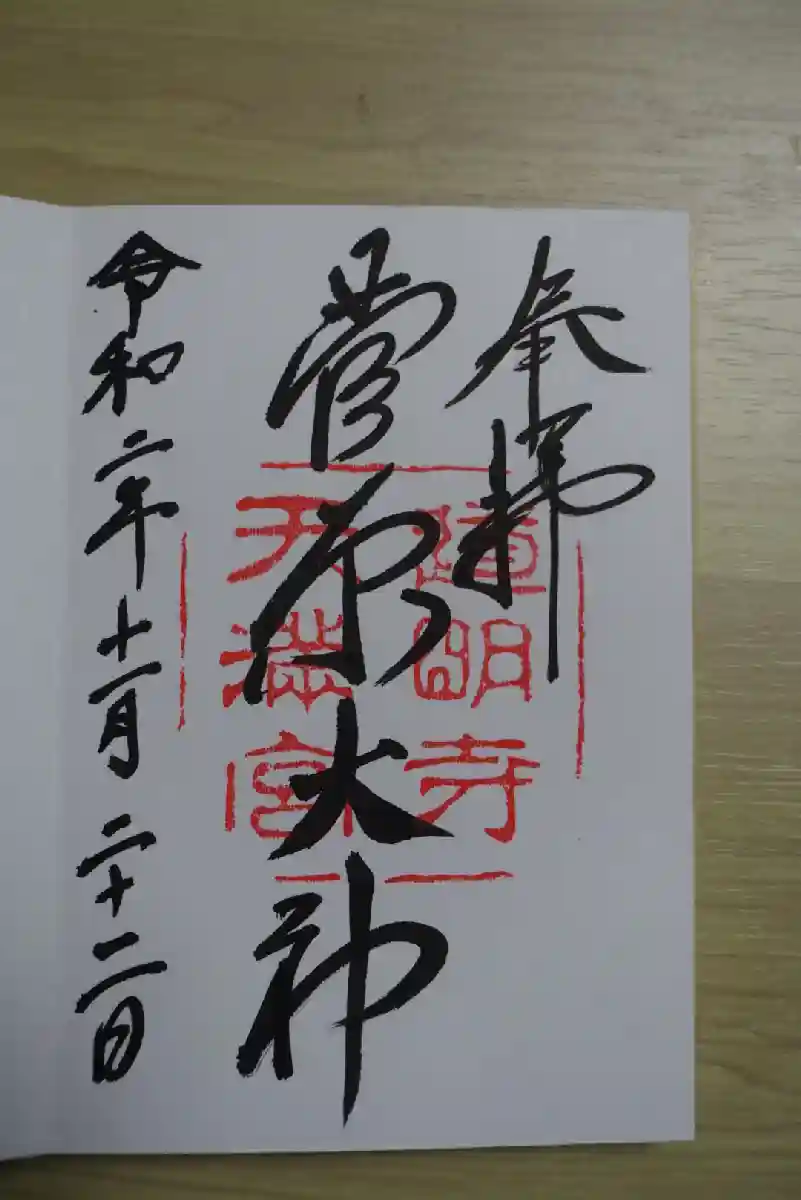 奉拝
菅原大神
令和二年十一月二十二日
道明寺
天満宮